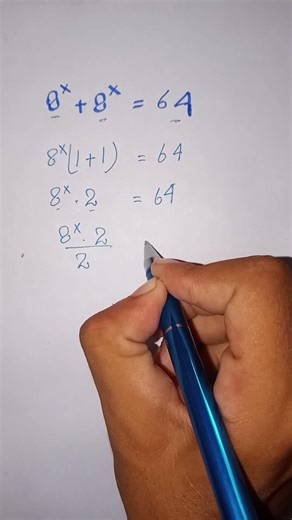 8ˣ + 8ˣ = 64
8ˣ(1+1) = 64
8ˣ · 2 = 64
8ˣ · 2
2